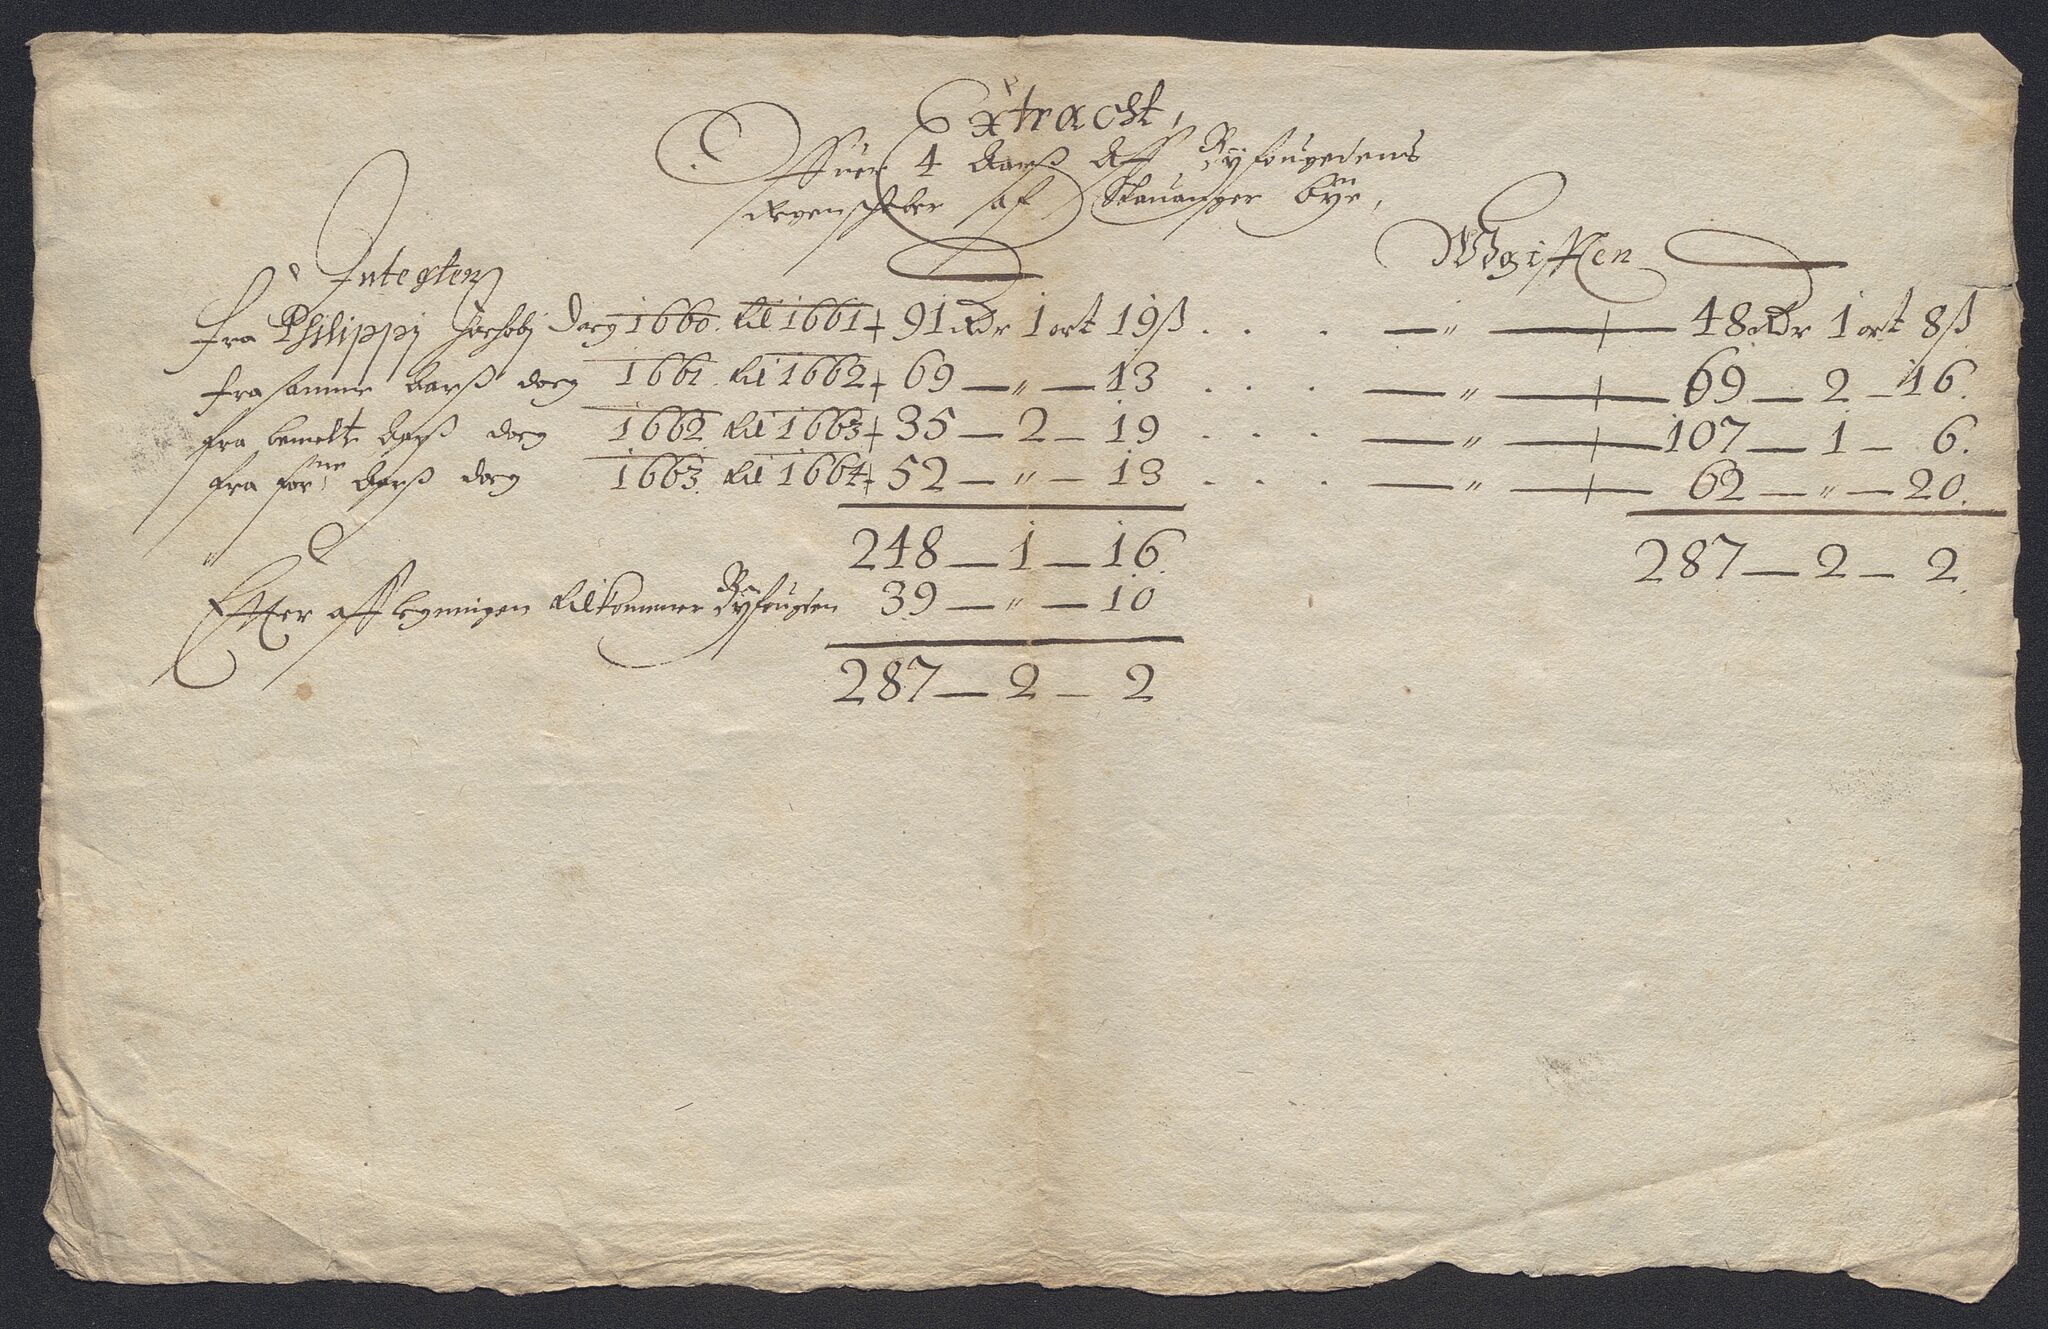 Extracht,
Offuer 4 Aarß Aff Byfougedens
Regenschaber af Stauanger bÿe,
Integten
Wdgifften
fra Philippj Jachobj Dag 1660. til 1661 91 Rdr 1 ort 19 ß . . . — " — 48 Rdr 1 ort 8 ß
fra samme Aarß dag 1661. til 1662 69 — " — 13 . . . — " — 69 — 2 — 16.
fra bemelte Aarß dag 1662 til 1663 35 — 2 — 19 . . . — " — 107 — 1 — 6.
fra forne Aarß dag 1663. til 1664 52 — " — 13 . . . — " — 62 — " — 20.
248 — 1 — 16. 287 — 2 — 2.
Effter aff legningen tilkommer Byfougten 39 — " — 10
287 — 2 — 2